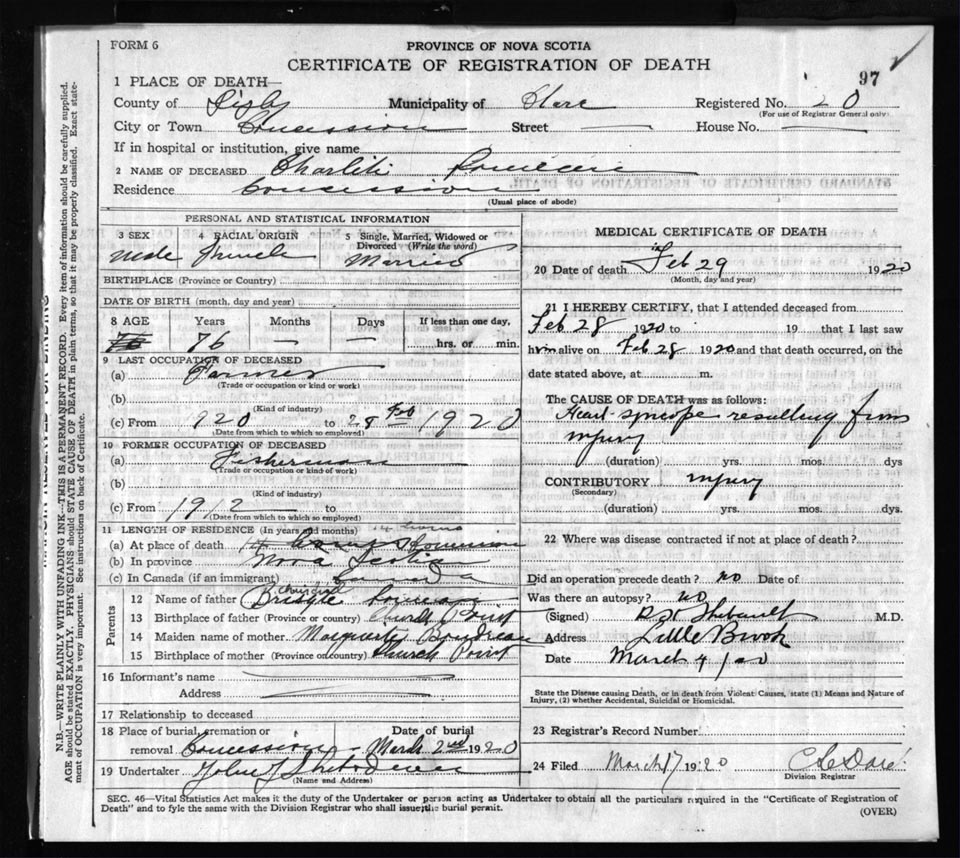 FORM 6
PROVINCE OF NOVA SCOTIA
CERTIFICATE OF REGISTRATION OF DEATH
97
1 PLACE OF DEATH
County of Digby Municipality of Clare Registered No. 20
(For use of Registrar General only)
City or Town Concession Street House No.
If in hospital or institution, give name
2 NAME OF DECEASED
Residence Concession
(Usual place of abode)
PERSONAL AND STATISTICAL INFORMATION
3 SEX 4 RACIAL ORIGIN 5 Single, Married, Widowed or Divorced (Write the word)
Male French Married
BIRTHPLACE (Province or Country)
DATE OF BIRTH (month, day and year)
8 AGE Years Months Days If less than one day,
76 — — hrs. or min.
9 LAST OCCUPATION OF DECEASED
(a) Farmer
(Trade or occupation or kind or work)
(b)
(Kind of industry)
(c) From 1920 to 28 Feb 1920
(Date from which to which so employed)
10 FORMER OCCUPATION OF DECEASED
(a) Fisherman
(Trade or occupation or kind of work)
(b)
(Kind of industry)
(c) From 1912 to
(Date from which to which so employed)
11 LENGTH OF RESIDENCE (In years and months)
(a) At place of death
(b) In province Nova Scotian
(c) In Canada (if an immigrant) Canada
Parents
12 Name of father
13 Birthplace of father (Province or country) Church Point
14 Maiden name of mother Marguerite Boudreau
15 Birthplace of mother (Province or country) Church Point
16 Informant's name
Address
17 Relationship to deceased
18 Place of burial, cremation or removal Concession
Date of burial March 2nd 1920
19 Undertaker John J
(Name and Address)
MEDICAL CERTIFICATE OF DEATH
20 Date of death Feb 29 1920
(Month, day and year)
21 I HEREBY CERTIFY, that I attended deceased from
Feb 28 1920 to 19 that I last saw
him alive on Feb 28 1920 and that death occurred, on the
date stated above, at m.
The CAUSE OF DEATH was as follows:
Heart syncope resulting from
injury
(duration) yrs. mos. dys
CONTRIBUTORY injury
(Secondary)
(duration) yrs. mos. dys.
22 Where was disease contracted if not at place of death?
Did an operation precede death? no Date of
Was there an autopsy? no
(Signed) Thebault M.D.
Address Little Brook
Date March 4/20
State the Disease causing Death, or in death from Violent Causes, state (1) Means and Nature of
Injury, (2) whether Accidental, Suicidal or Homicidal.
23 Registrar's Record Number
24 Filed March 17 1920
Division Registrar
SEC. 46—Vital Statistics Act makes it the duty of the Undertaker or person acting as Undertaker to obtain all the particulars required in the "Certificate of Registration of
Death" and to fyle the same with the Division Registrar who shall issue the burial permit.
(OVER)
N.B.—WRITE PLAINLY WITH UNFADING INK—THIS IS A PERMANENT RECORD. Every item of information should be carefully supplied.
AGE should be stated EXACTLY. PHYSICIANS should STATE CAUSE OF DEATH in plain terms, so that it may be properly classified. Exact statement
of OCCUPATION is very important. See instructions on back of Certificate.